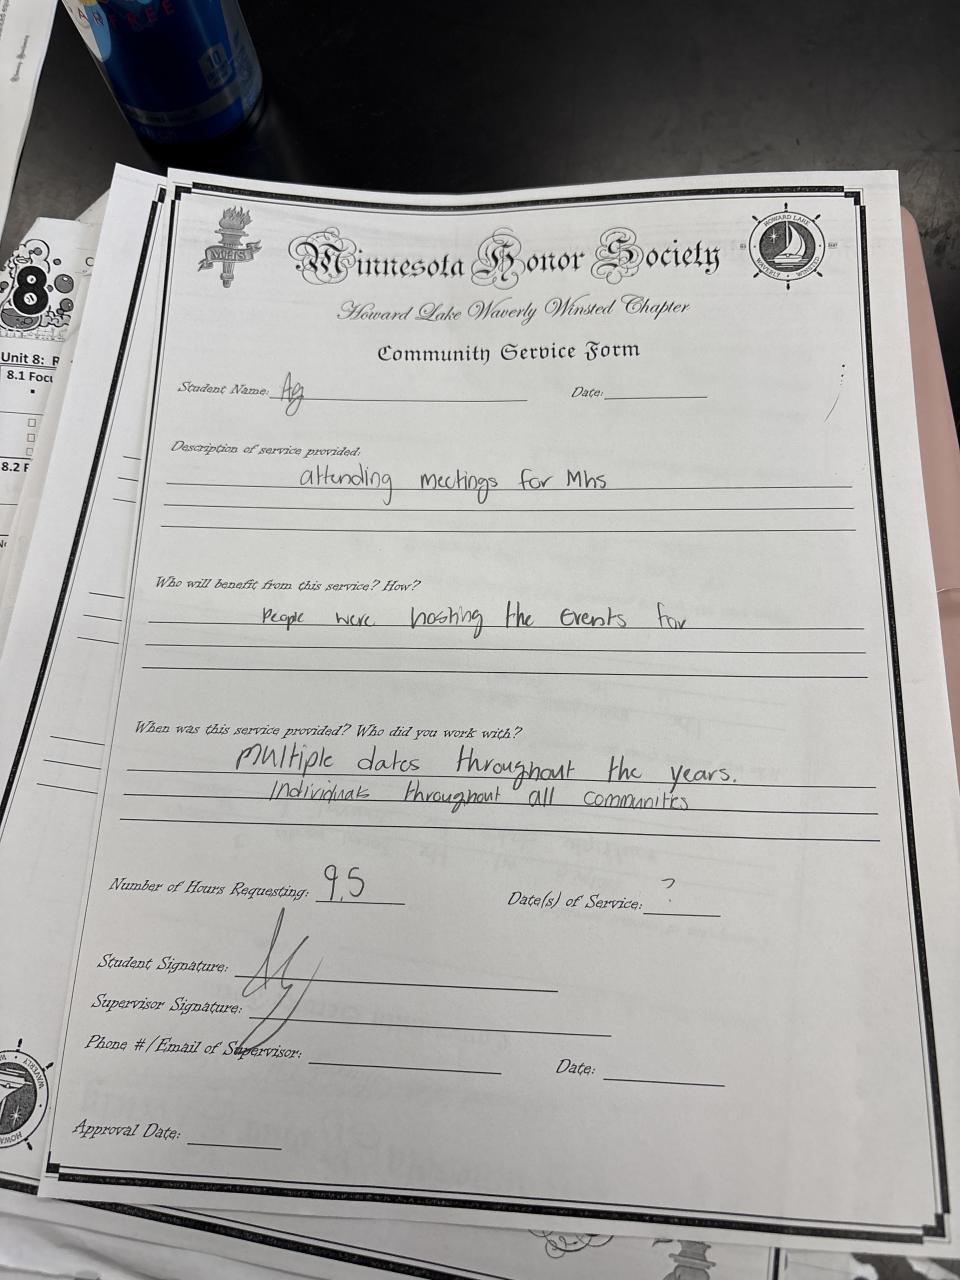 FREE
10
MHS
Minnesota Honor Society
HOWARD LAKE
WAVERLY WINSTED
Howard Lake Waverly Winsted Chapter
Community Service Form
Student Name: Ag
Date:
Description of service provided:
attending meetings for Mhs
Who will benefit from this service? How?
People were hosting the events for
When was this service provided? Who did you work with?
Multiple dates throughout the years.
Individuals throughout all communities
Number of Hours Requesting: 9.5
Date(s) of Service: ?
Student Signature:
Supervisor Signature:
Phone #/Email of Supervisor:
Date:
Approval Date:
8
Unit 8:
8.1
8.2
WAVERLY